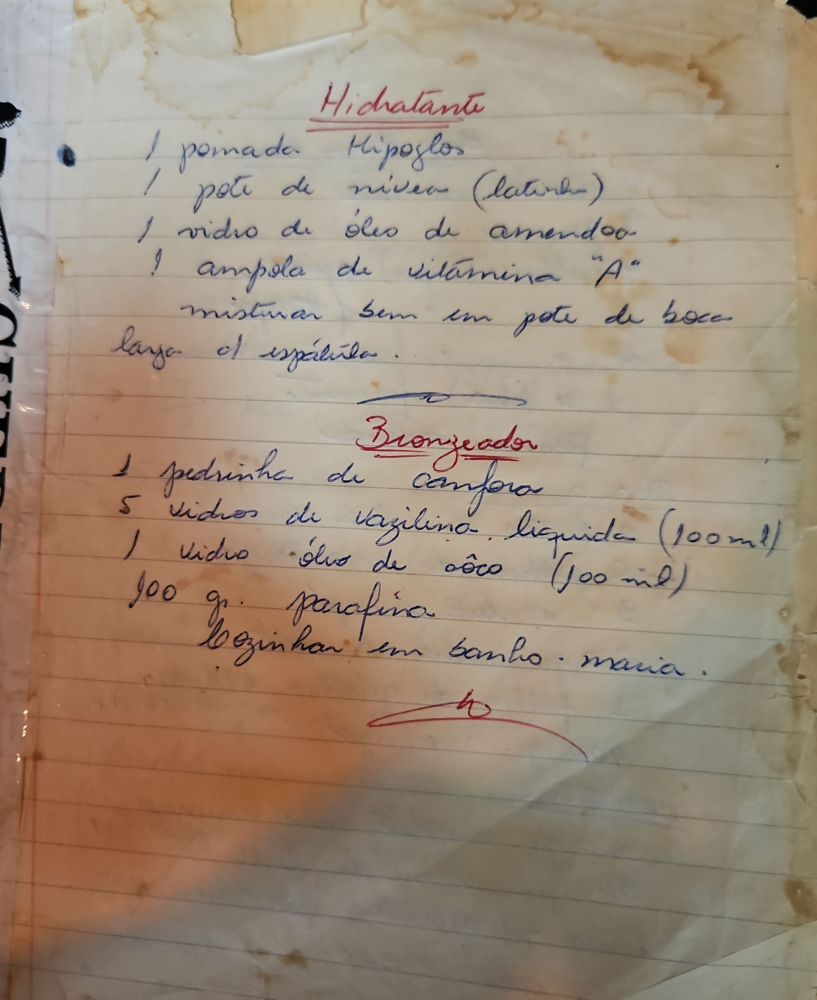 Hidratante
1 pomada Hipoglos
1 pote de nívea (latinha)
1 vidro de óleo de amendoa
1 ampola de vitâmina "A"
misturar bem em pote de boca
larga c/ espátula.
Bronzeador
1 pedrinha de canfora
5 vidros de vazilina liquida (100 ml)
1 vidro óleo de côco (100 ml)
100 gr. parafina
Cozinhar em banho-maria.